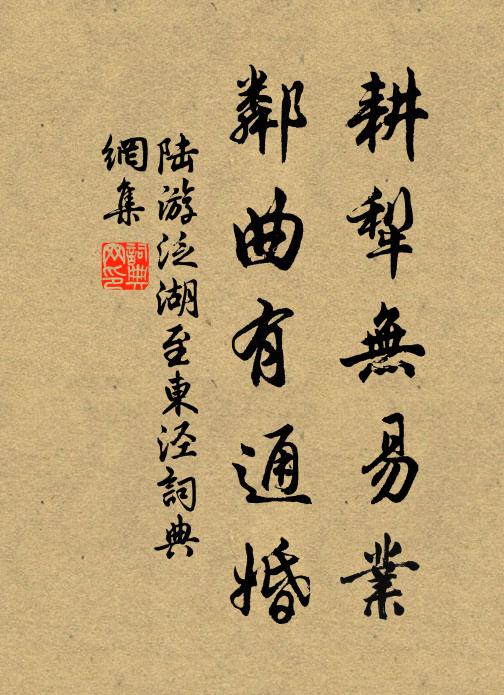 耕犁無易業
鄰曲有通婚
陆游泛湖至東泾詞典
網集
詞典
网印